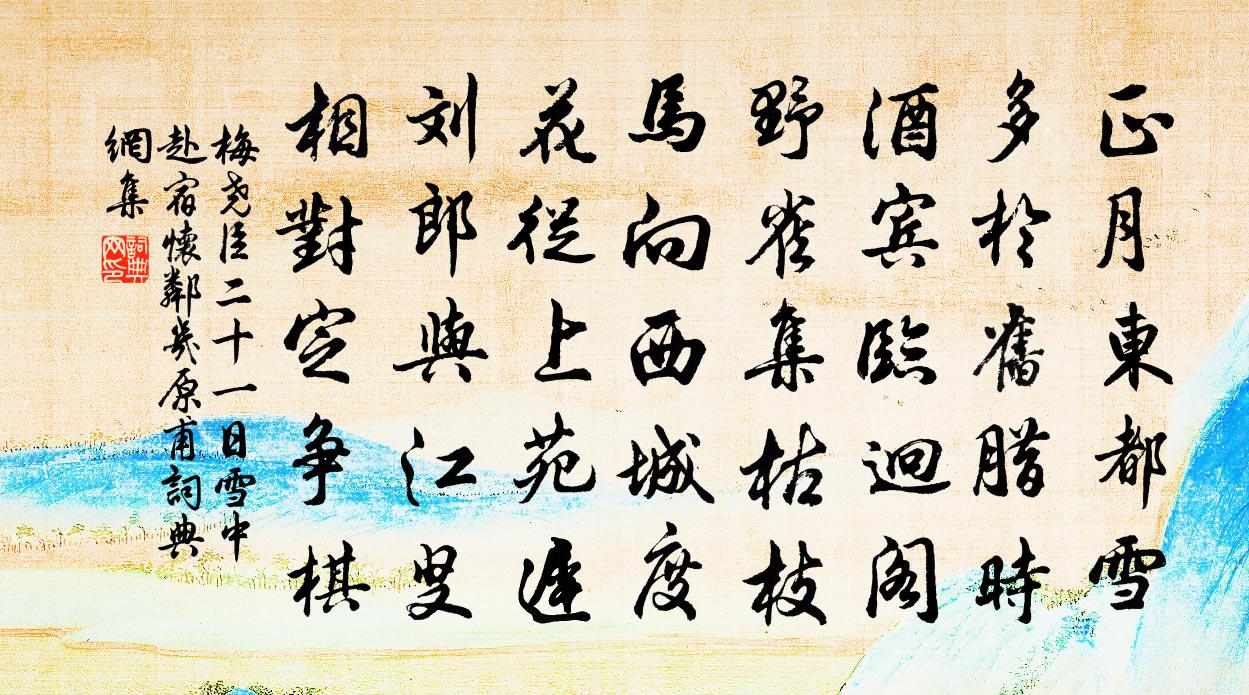 正月東都雪
多於舊腊時
酒賓臨迴阁
野雀集枯枝
馬向西城度
花從上苑遲
刘郎與江叟
相對空争棋
梅尧臣二十一日雪中
赴宿懷鄰幾原甫詞典
網集
詞典网印